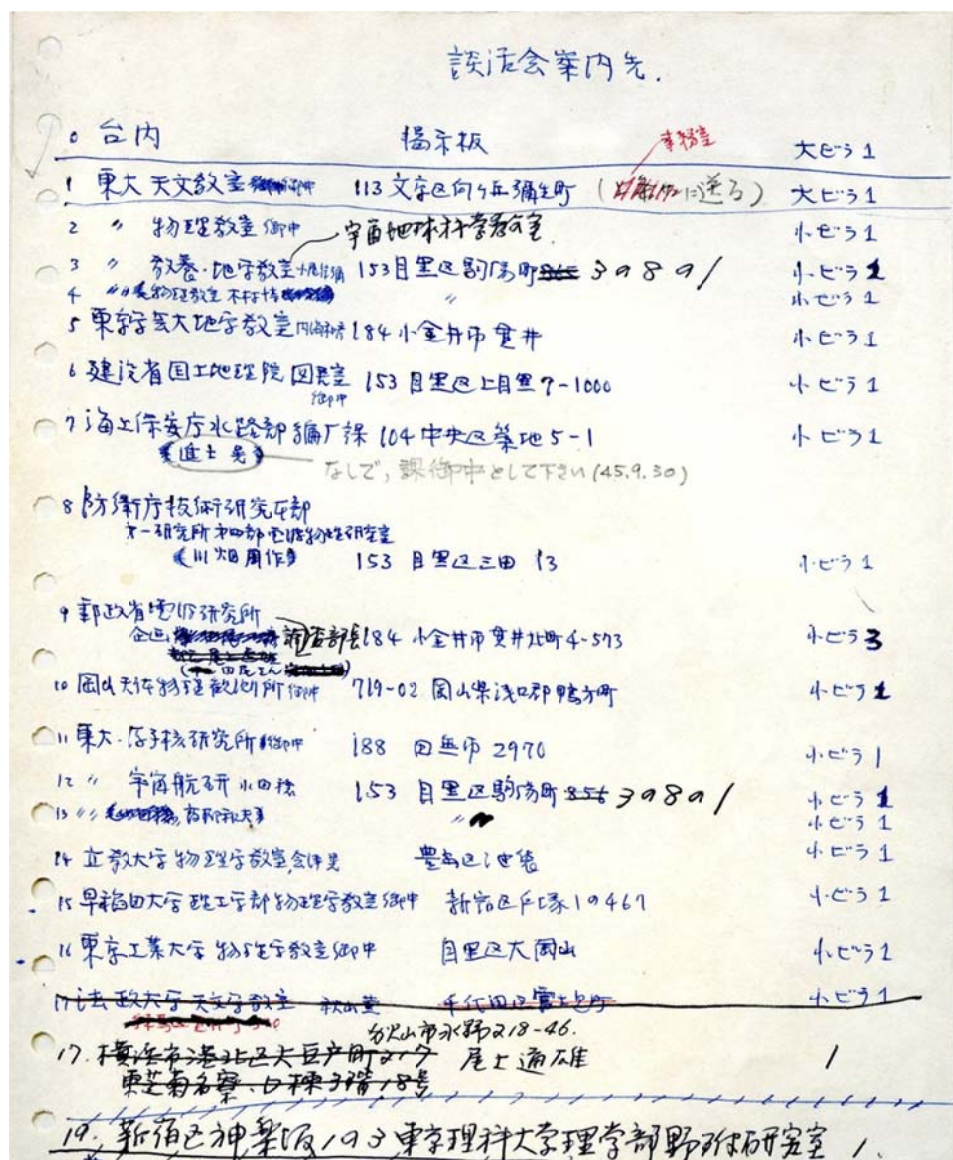 談話会案内先.
0 台内 掲示板 大ビラ1
事務室
1 東大 天文教室 御中 113 文京区向ヶ丘弥生町 ( に送る) 大ビラ1
2 〃 物理教室 御中 小ビラ1
宇宙地球科学教室
3 〃 教養・地学教室 153 目黒区駒場町 3の8の1 小ビラ1
4 〃〃 物理教室 〃 小ビラ1
5 東京学芸大地学教室 184 小金井市貫井 小ビラ1
6 建設省国土地理院 図書室 御中 153 目黒区上目黒7-1000 小ビラ1
7 海上保安庁水路部編暦課 104 中央区築地5-1 小ビラ1
(進士晃) なしで,課御中として下さい(45.9.30)
8 防衛庁技術研究本部
第一研究所第四部電波物理研究室
(川畑周作) 153 目黒区三田13 小ビラ1
9 郵政省電波研究所
企画 調査部長 184 小金井市貫井北町4-573 小ビラ3
10 岡山天体物理観測所 御中 719-02 岡山県浅口郡鴨方町 小ビラ1
11 東大・原子核研究所 御中 188 田無市2970 小ビラ1
12 〃 宇宙航研 小田稔 153 目黒区駒場町 856 3の8の1 小ビラ1
13 〃〃 〃 小ビラ1
14 立教大学物理学教室 豊島区池袋 小ビラ1
15 早稲田大学理工学部物理学教室 御中 新宿区戸塚1の467 小ビラ1
16 東京工業大学物理学教室 御中 目黒区大岡山 小ビラ1
17 法政大学天文学教室 秋山薫 千代田区富士見町 小ビラ1
犬山市水野218-46.
17. 横浜市港北区大豆戸町217 尾上通雄 1
東芝菊名寮 3階18号
19. 新宿区神楽坂1の3 東京理科大学理学部野附研究室 1.